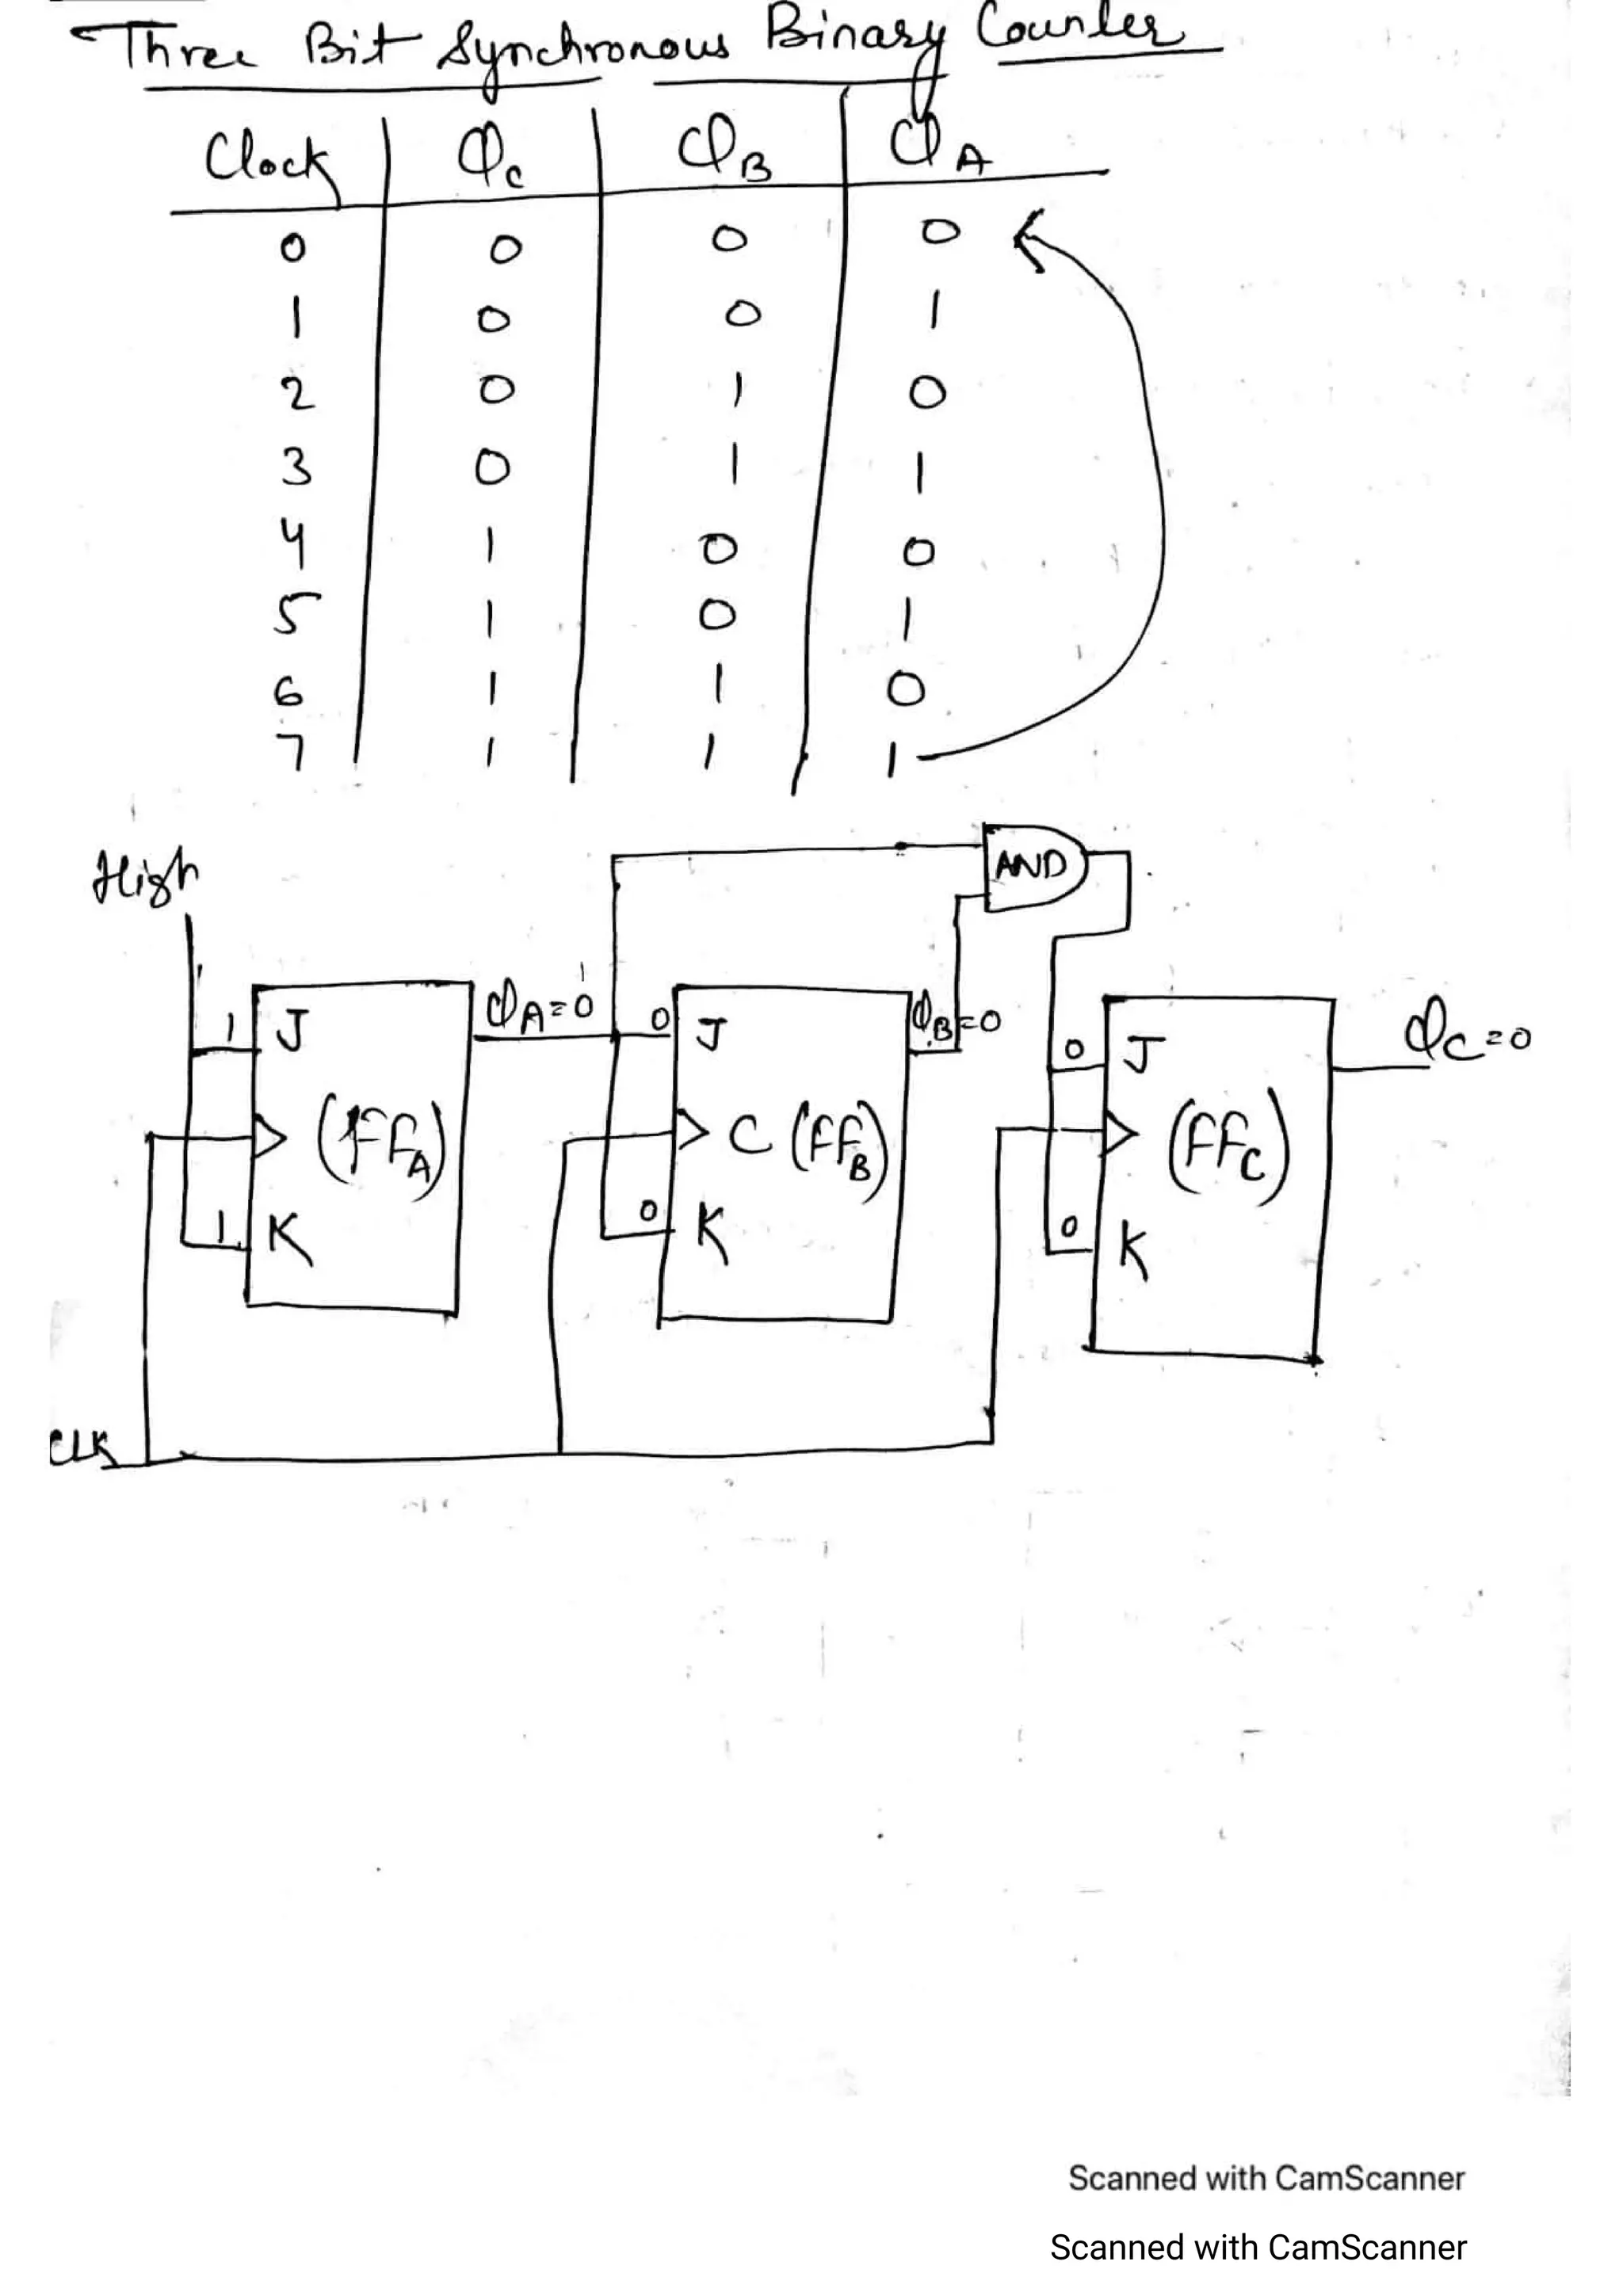 Three Bit Synchronous Binary Counter
Clock QC QB QA
0 0 0 0
1 0 0 1
2 0 1 0
3 0 1 1
4 1 0 0
5 1 0 1
6 1 1 0
7 1 1 1
AND
High
1
QA=0 QB=0 QC=0
1 J 0 J 0 J
(FFA) C (FFB) (FFC)
1 K 0 K 0 K
CLK
Scanned with CamScanner
Scanned with CamScanner